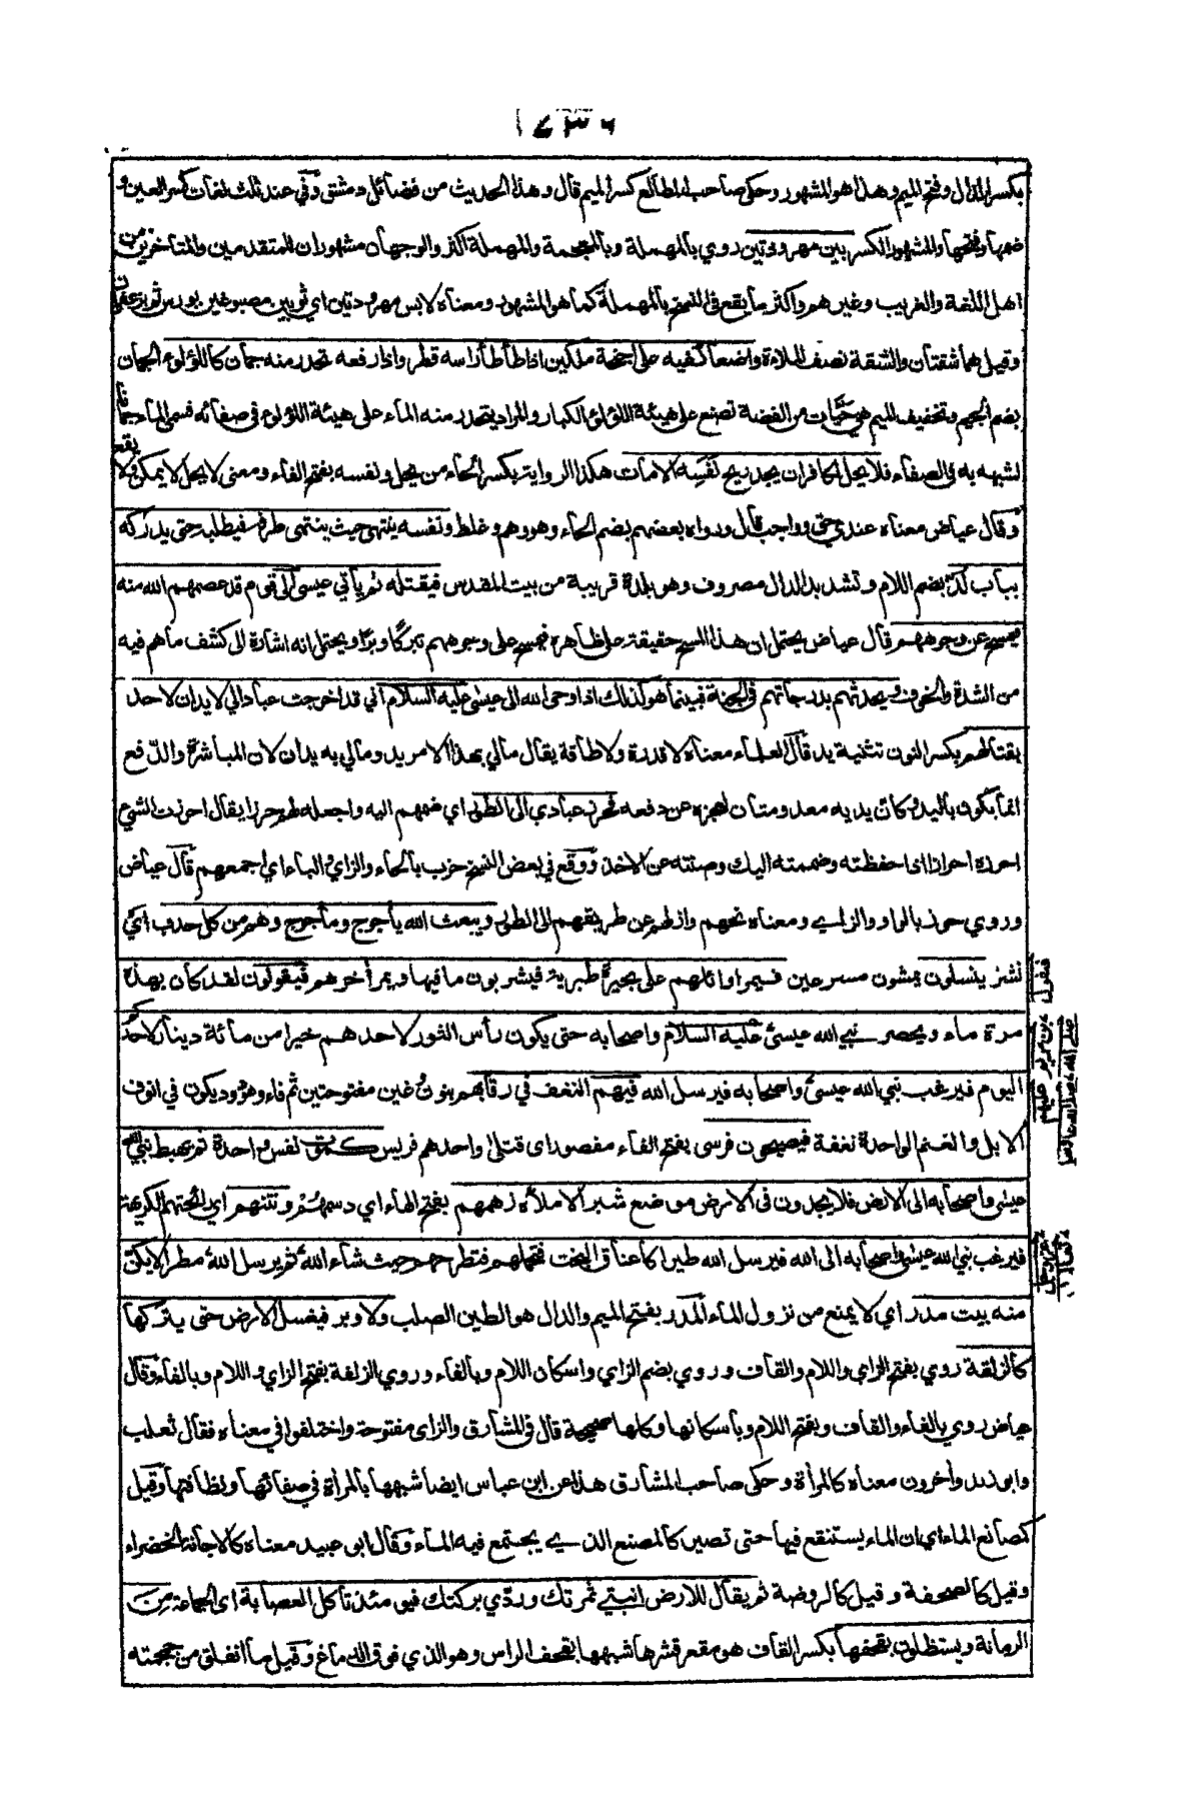 بكسر الدال وفتح الميم وهذا هو المشهور وحكى صاحب المطالع كسر الميم قال وهذا الحديث من فضائل دمشق وفي عند ثلث لغات كسر العين و
ضمها وفتحها والمشهور الكسر بين مهرودتين روي بالمهملة وبالمعجمة والمهملة اكثر والوجهان مشهوران للمتقدمين والمتأخرين من
اهل اللغة والغريب وغيرهم واكثر ما يقع في النسخ بالمهملة كما هو المشهور ومعناه لابس مهرودتين اي ثوبين مصبوغين بورس ثم بزعفران
وقيل هما شقتان والشقة نصف الملاءة واضعا كفيه على اجنحة ملكين اذا طأطأ راسه قطر واذا رفعه تحدر منه جمان كاللؤلوء الجمان
بضم الجيم وتخفيف الميم هي حبات من الفضة تصنع على هيئة اللؤلوء الكبار والمراد يتحدر منه الماء على هيئة اللؤلوء في صفائه فسمى الماء جمانا
لشبهه به في الصفاء فلا يحل لكافر ان يجد ريح نفسه الا مات هكذا الرواية بكسر الحاء من يحل ونفسه بفتح الفاء ومعنى لا يحل لا يمكن ولا يقع
وقال عياض معناه عندي حق وواجب قال ورواه بعضهم بضم الحاء وهو وهم وغلط ونفسه ينتهى حيث ينتهى طرفه فيطلبه حتى يدركه
بباب لد بضم اللام وتشديد الدال مصروف وهو بلدة قريبة من بيت المقدس فيقتله ثم يأتي عيسى الى قوم قد عصمهم الله منه
فيمسح عن وجوههم قال عياض يحتمل ان هذا المسح حقيقة على ظاهره فيمسح على وجوههم تبركا وبرا ويحتمل انه اشارة الى كشف ما هم فيه
من الشدة والخوف ويحدثهم بدرجاتهم في الجنة فبينما هو كذلك اذا اوحى الله الى عيسى عليه السلام اني قد اخرجت عبادا لي لا يدان لاحد
بقتالهم بكسر النون تثنية يد قال العلماء معناه لا قدرة ولا طاقة يقال مالي بهذا الامر يد ومالي به يدان لان المباشرة والدفع
انما يكون باليد وكان يديه معدومتان لعجزه عن دفعه فحرز عبادي الى الطور اي ضمهم اليه واجعله لهم حرزا يقال احرزت الشيء
احرزه احرازا اذا حفظته وضممته اليك وصنته عن الاخذ ووقع في بعض النسخ حزب بالحاء والزاي والباء اي اجمعهم قال عياض
وروي حوز بالواو والزاي ومعناه نحهم وازلهم عن طريقهم الى الطور ويبعث الله يأجوج ومأجوج وهم من كل حدب اي
نشز ينسلون يمشون مسرعين فيمر اوائلهم على بحيرة طبرية فيشربون ما فيها ويمر أخرهم فيقولون لقد كان بهذه
مرة ماء ويحصر نبي الله عيسى عليه السلام واصحابه حتى يكون رأس الثور لاحدهم خيرا من مائة دينار لاحدكم
اليوم فيرغب نبي الله عيسى واصحابه فيرسل الله فيهم النغف في رقابهم بنون وغين مفتوحتين ثم فاء وهو دود يكون في انوف
الابل والغنم الواحدة نغفة فيصبحون فرسى بفتح الفاء مقصور اى قتلى واحدهم فريس كموت نفس واحدة ثم يهبط نبي الله
عيسى واصحابه الى الارض فلا يجدون في الارض موضع شبر الا ملأه زهمهم بفتح الهاء اي دسمهم ونتنهم اي رائحتهم الكريهة
فيرغب نبي الله عيسى واصحابه الى الله فيرسل الله طيرا كاعناق البخت فتحملهم فتطرحهم حيث شاء الله ثم يرسل الله مطرا لا يكن
منه بيت مدر اي لا يمنع من نزول الماء المدر بفتح الميم والدال هو الطين الصلب ولا وبر فيغسل الارض حتى يتركها
كالزلقة روي بفتح الزاي واللام والقاف وروي بضم الزاي واسكان اللام وبالفاء وروي الزلفة بفتح الزاي واللام وبالفاء وقال
عياض روي بالفاء والقاف وبفتح اللام وباسكانها وكلها صحيحة قال في المشارق والزاى مفتوحة واختلفوا في معناه فقال ثعلب
وابو زيد وأخرون معناه كالمرأة وحكى صاحب المشارق هذا عن ابن عباس ايضا شبهها بالمرأة في صفائها ونظافتها وقيل
كمصانع الماء اي ان الماء يستنقع فيها حتى تصير كالمصنع الذي يجتمع فيه الماء وقال ابو عبيد معناه كالاجانة الخضراء
وقيل كالصحفة وقيل كالروضة ثم يقال للارض انبتي ثمرتك وردي بركتك فيومئذ تأكل العصابة اى الجماعة من
الرمانة ويستظلون بقحفها بكسر القاف هو مقعر قشرها شبهها بقحف الراس وهو الذي فوق الدماغ وقيل ما انفلق من جمجمته
فيقول